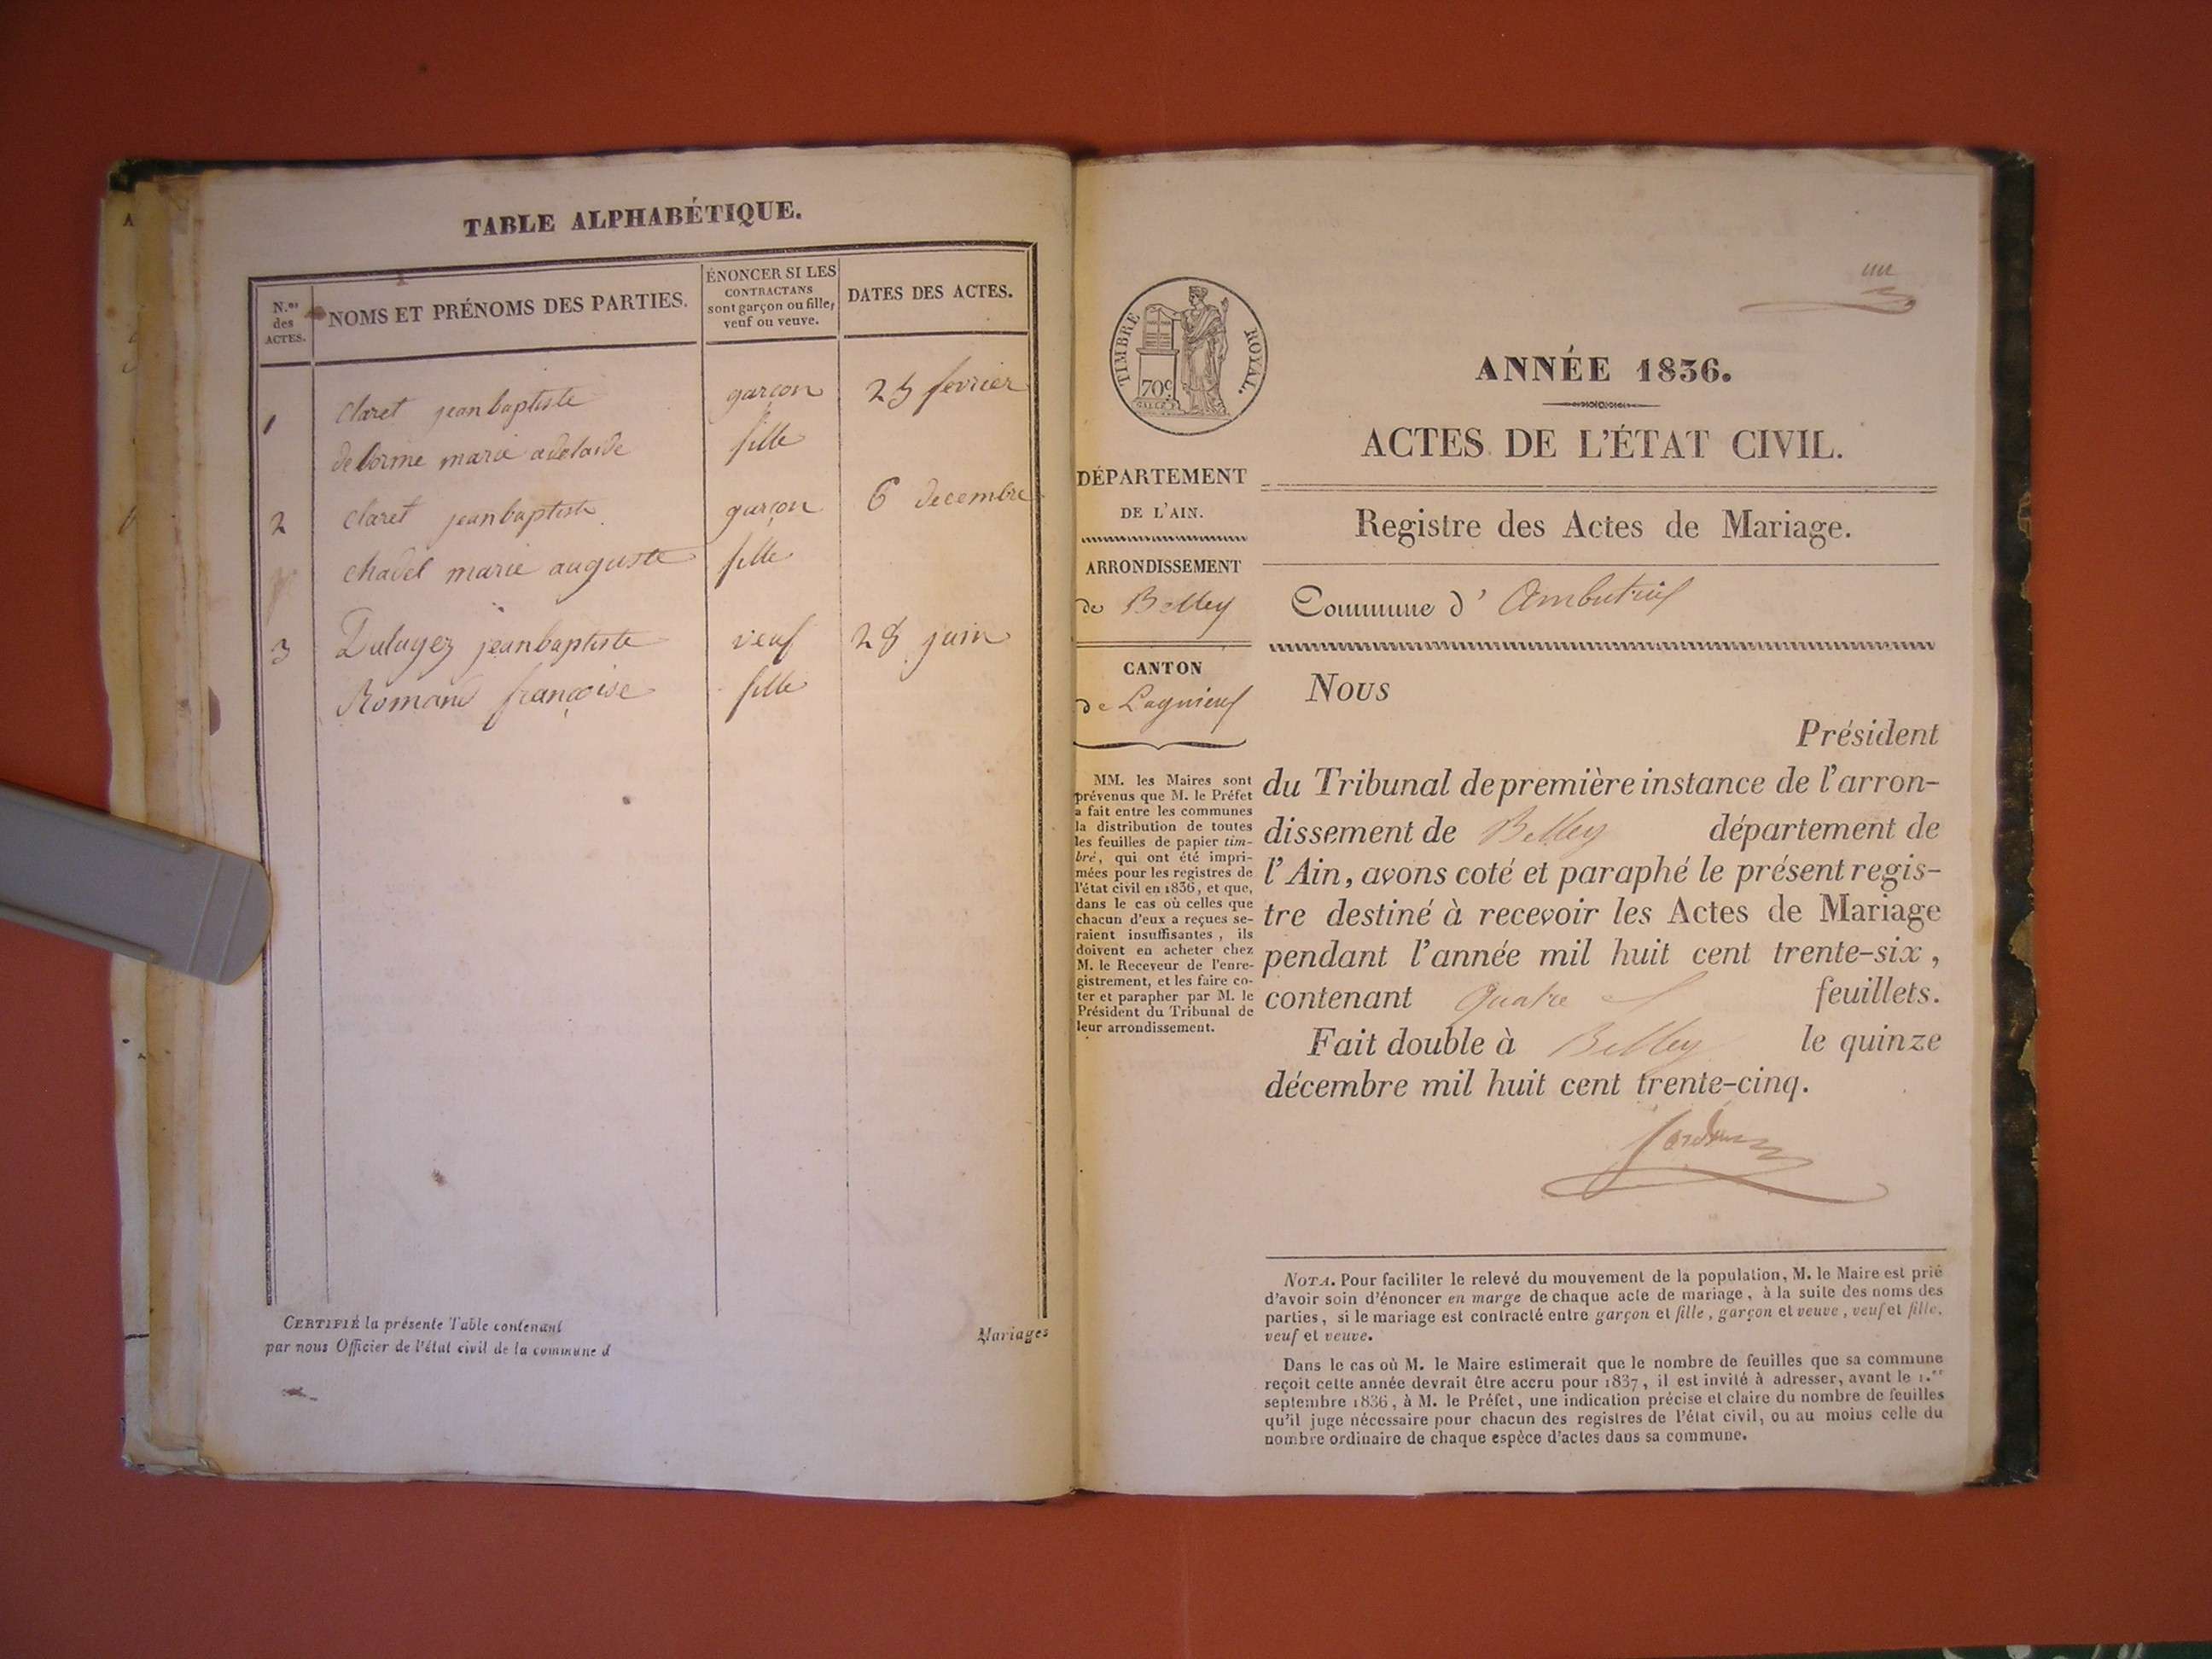 TABLE ALPHABÉTIQUE.
N.os des ACTES.
NOMS ET PRÉNOMS DES PARTIES.
ÉNONCER SI LES
CONTRACTANS
sont garçon ou fille,
veuf ou veuve.
DATES DES ACTES.
1 Claret jean baptiste garçon 25 fevrier
delorme marie adelaide fille
2 Claret jean baptiste garçon 6 decembre
chadel marie auguste fille
3 jean baptiste veuf 28 juin
Romand françoise fille
CERTIFIÉ la présente Table contenant Mariages
par nous Officier de l'état civil de la commune d
un
TIMBRE ROYAL.
70c
ANNÉE 1836.
ACTES DE L'ÉTAT CIVIL.
Registre des Actes de Mariage.
Commune d' Ambutrix
DÉPARTEMENT
DE L'AIN.
ARRONDISSEMENT
de Belley
CANTON
de Lagnieu
MM. les Maires sont
prévenus que M. le Préfet
a fait entre les communes
la distribution de toutes
les feuilles de papier tim-
bré, qui ont été impri-
mées pour les registres de
l'état civil en 1836, et que,
dans le cas où celles que
chacun d'eux a reçues se-
raient insuffisantes, ils
doivent en acheter chez
M. le Receveur de l'enre-
gistrement, et les faire co-
ter et parapher par M. le
Président du Tribunal de
leur arrondissement.
Nous
Président
du Tribunal de première instance de l'arron-
dissement de Belley département de
l'Ain, avons coté et paraphé le présent regis-
tre destiné à recevoir les Actes de Mariage
pendant l'année mil huit cent trente-six,
contenant quatre feuillets.
Fait double à Belley le quinze
décembre mil huit cent trente-cinq.
NOTA. Pour faciliter le relevé du mouvement de la population, M. le Maire est prié
d'avoir soin d'énoncer en marge de chaque acte de mariage, à la suite des noms des
parties, si le mariage est contracté entre garçon et fille, garçon et veuve, veuf et fille,
veuf et veuve.
Dans le cas où M. le Maire estimerait que le nombre de feuilles que sa commune
reçoit cette année devrait être accru pour 1837, il est invité à adresser, avant le 1.er
septembre 1836, à M. le Préfet, une indication précise et claire du nombre de feuilles
qu'il juge nécessaire pour chacun des registres de l'état civil, ou au moins celle du
nombre ordinaire de chaque espèce d'actes dans sa commune.